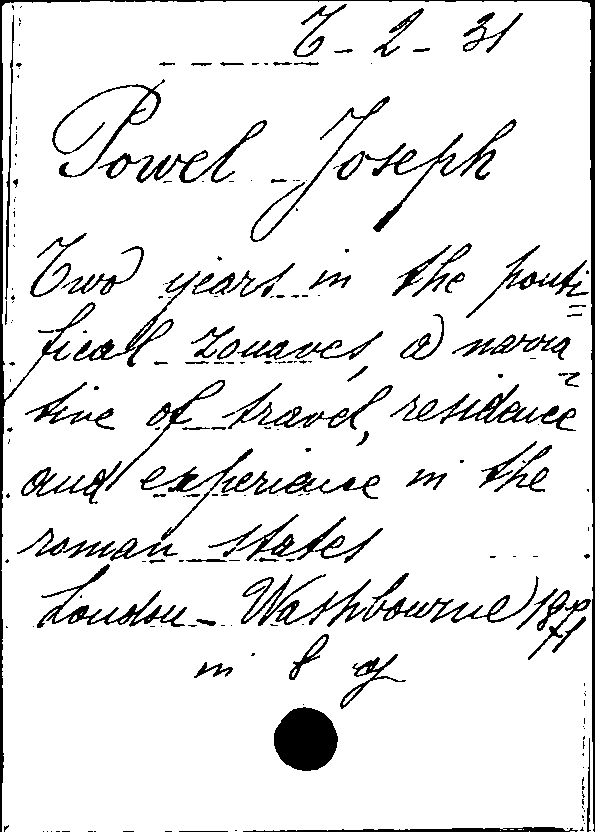 6-2-31
Powel Joseph
Two years in the ponti=
fical zouaves, a narra=
tive of travel, residence
and experience in the
roman states
London - Washbourne 1871
in 8 g